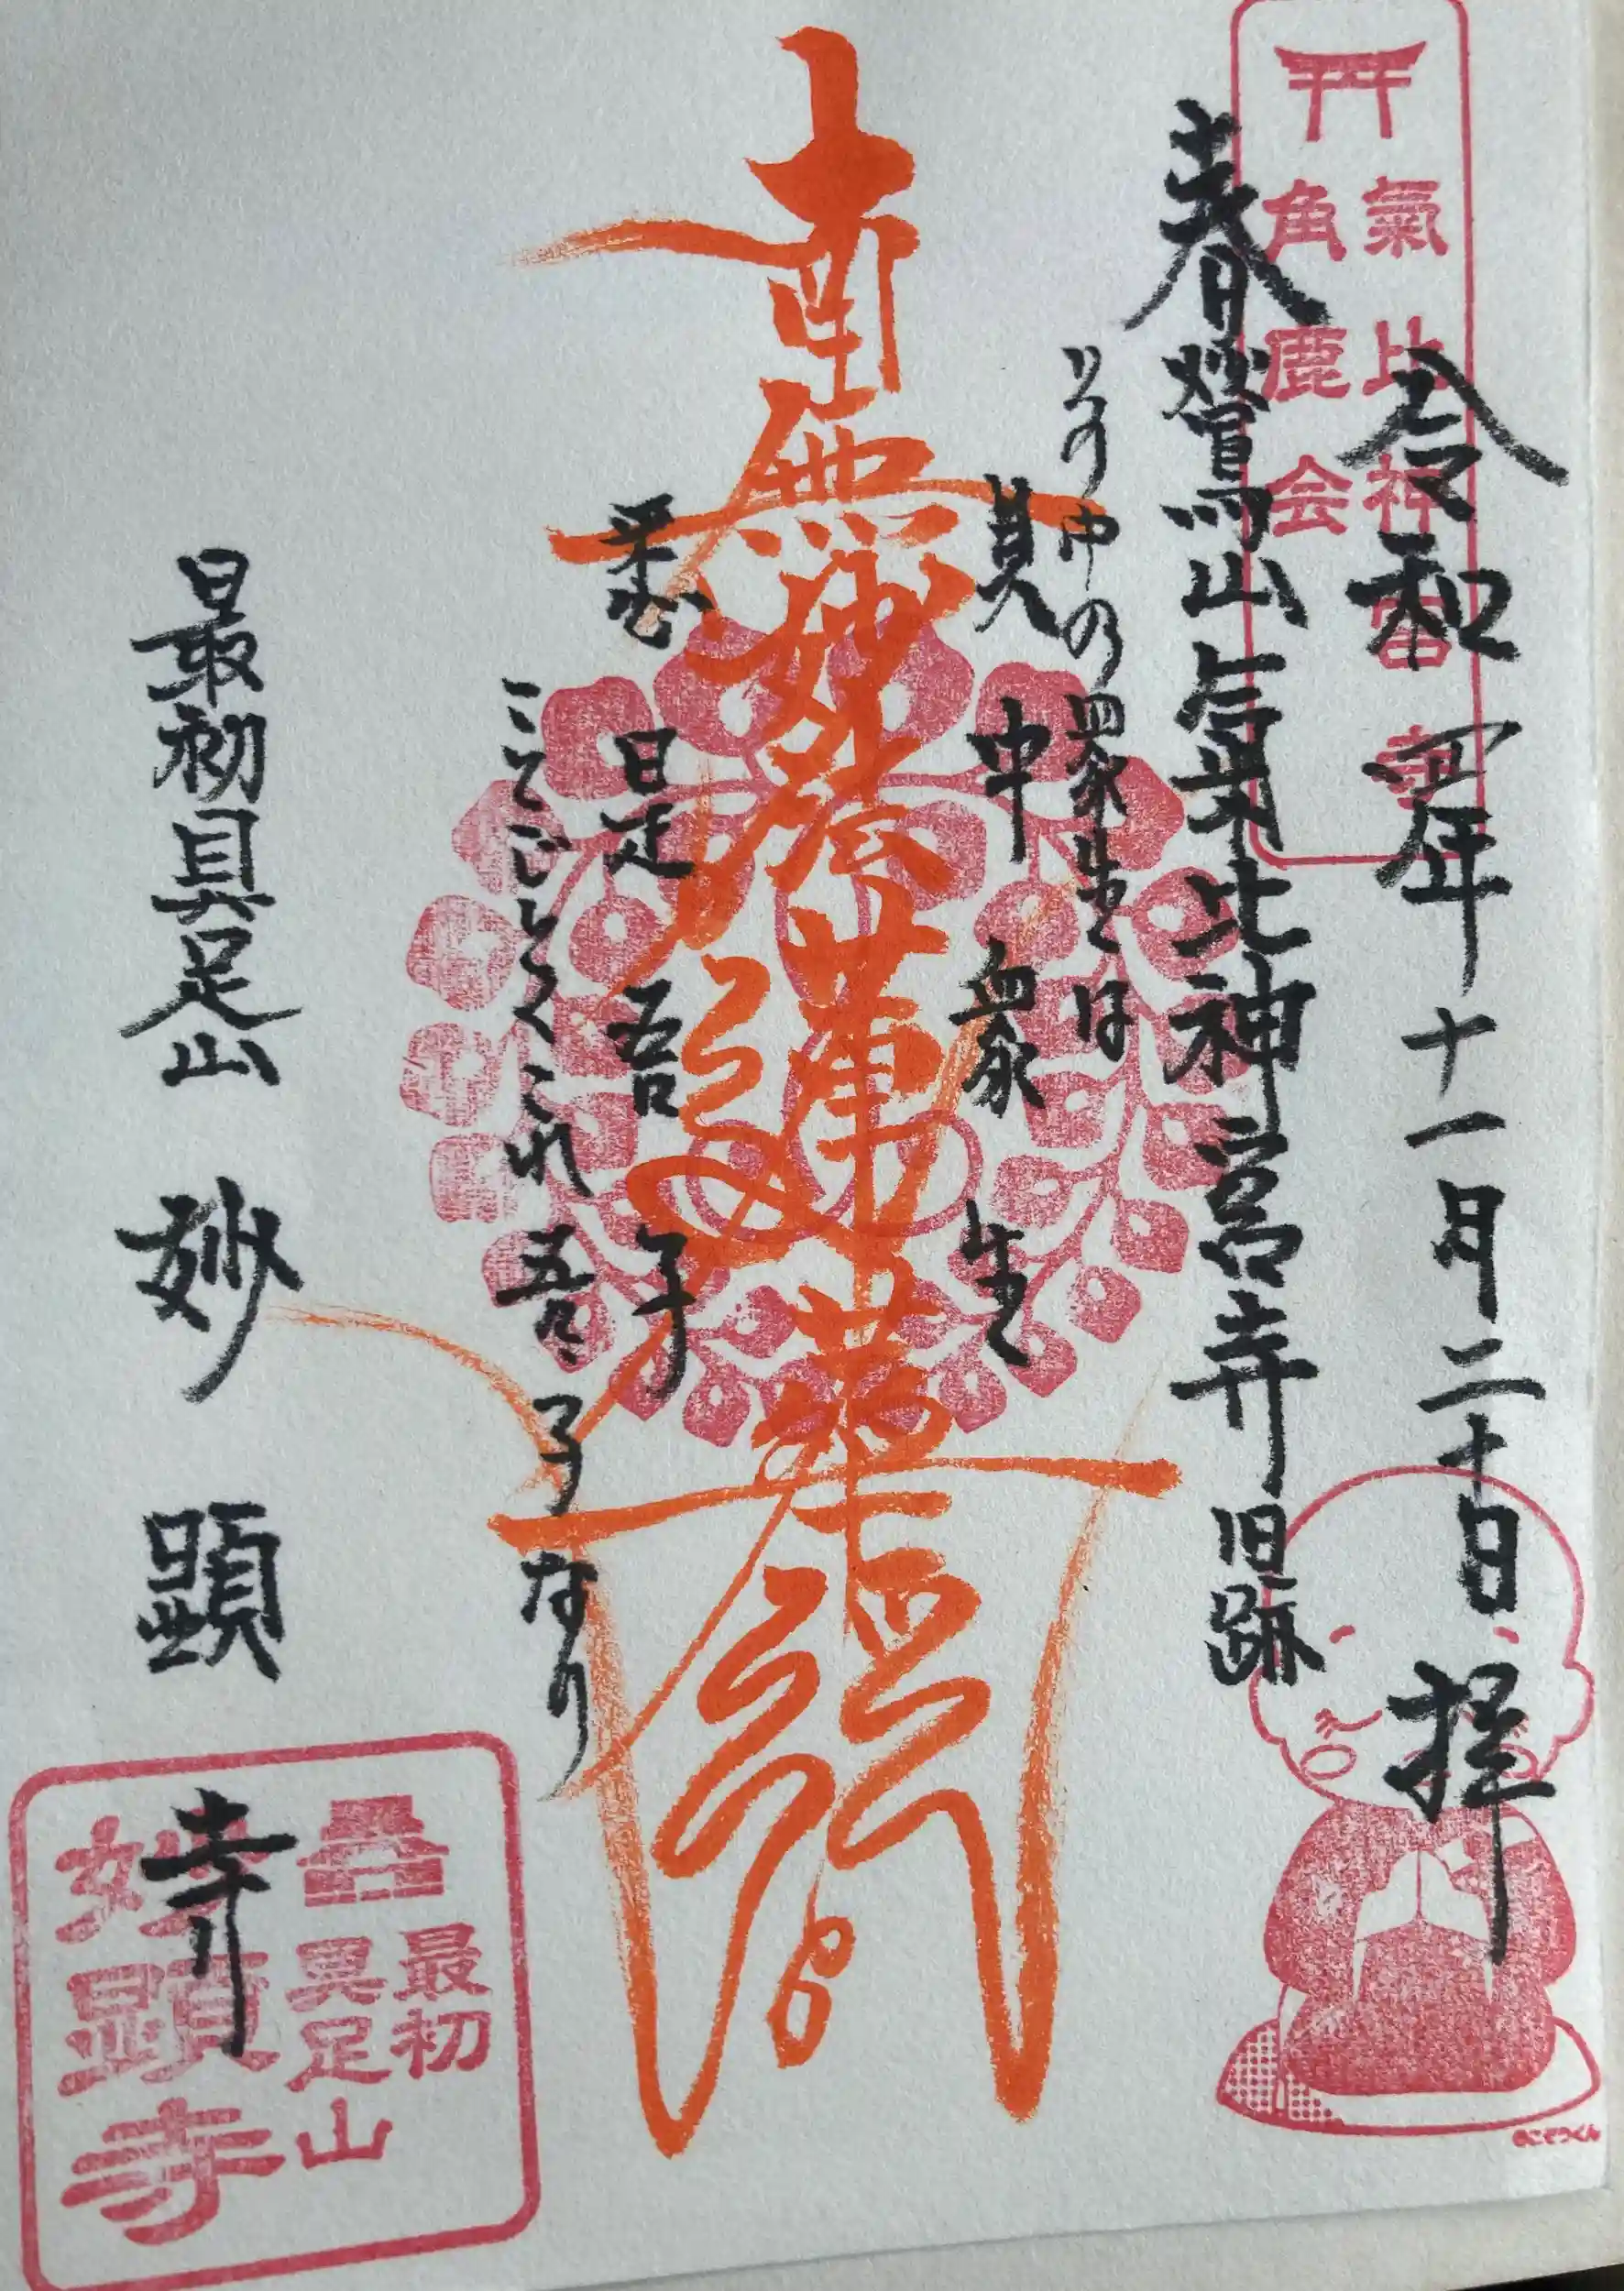 令和四年十一月二十日 拝
氣比神宮寺
角鹿会
春鶯山氣比神宮寺旧跡
其中衆生
その中の衆生は
南無妙法蓮華経
悉是吾子
ことごとくこれ吾が子なり
最初具足山 妙顕寺
最初
具足山
妙顕寺